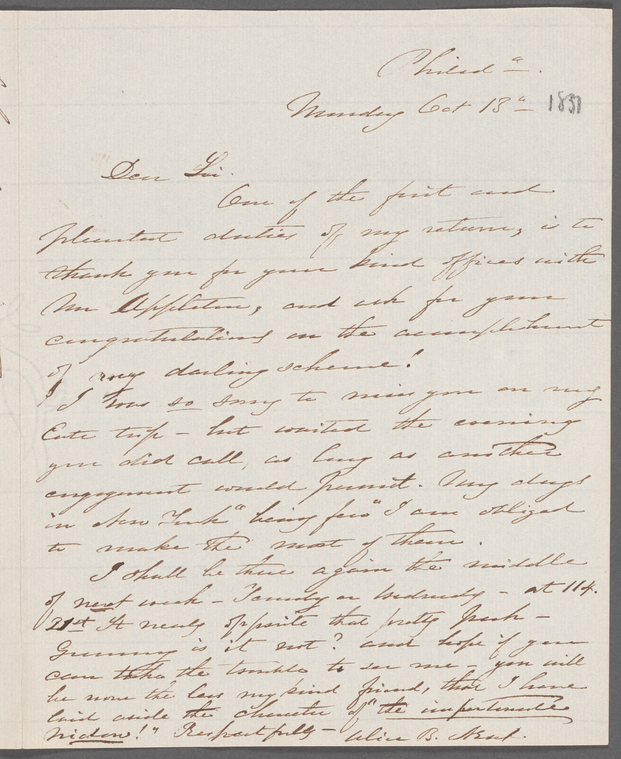 Philad a.
Monday Oct 13th 1851
Dear Sir.
One of the first and
pleasantest duties of my return, is to
thank you for your kind offices with
Mr Appleton, and ask for your
congratulations on the accomplishment
of my darling scheme!
I was so sorry to miss you on my
late trip – but waited the evening
you did call, as long as another
engagement would permit. My days
in New York "being few" I am obliged
to make the most of them.
I shall be there again the middle
of next week – Tuesday or Wednesday – at 114.
21st St nearly opposite that pretty Park –
Grammercy is it not? and hope if you
can take the trouble to see me – you will
be none the less my kind friend, that I have
laid aside the character of "the importunate
widow!" Respectfully – Alice B. Neal.